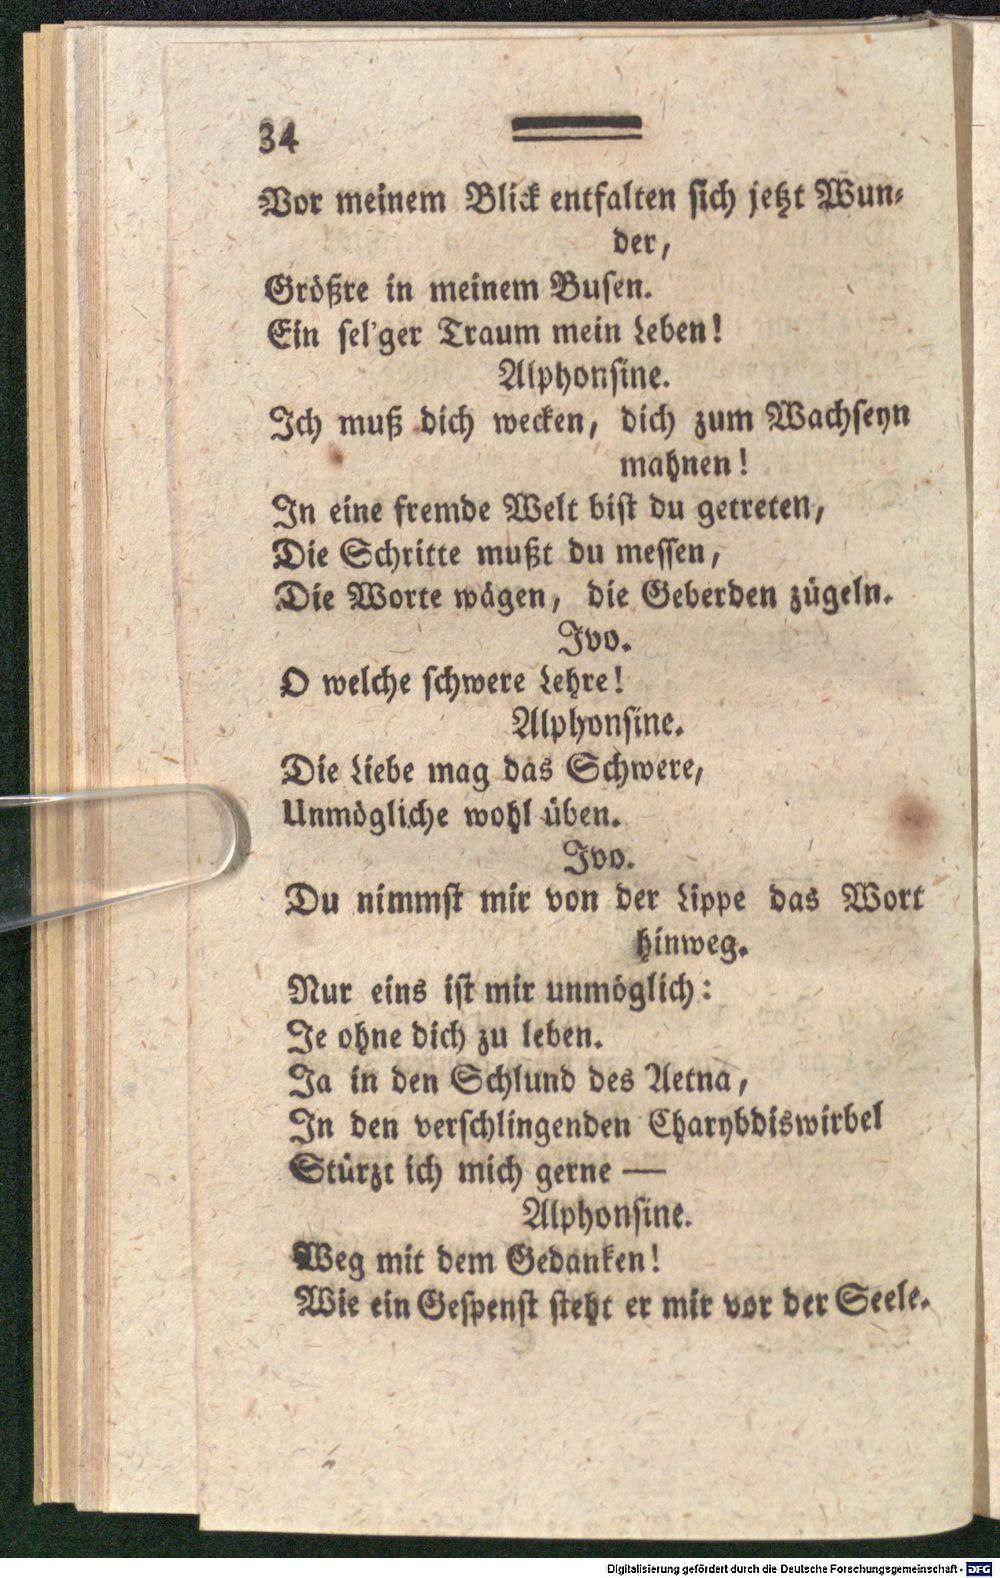 34
Vor meinem Blick entfalten sich jetzt Wun-
der,
Größre in meinem Busen.
Ein sel'ger Traum mein Leben!
Alphonsine.
Ich muß dich wecken, dich zum Wachseyn
mahnen!
In eine fremde Welt bist du getreten,
Die Schritte mußt du messen,
Die Worte wägen, die Geberden zügeln.
Ivo.
O welche schwere Lehre!
Alphonsine.
Die Liebe mag das Schwere,
Unmögliche wohl üben.
Ivo.
Du nimmst mir von der Lippe das Wort
hinweg.
Nur eins ist mir unmöglich:
Je ohne dich zu leben.
Ja in den Schlund des Aetna,
In den verschlingenden Charybdiswirbel
Stürzt ich mich gerne —
Alphonsine.
Weg mit dem Gedanken!
Wie ein Gespenst steht er mir vor der Seele.
Digitalisierung gefördert durch die Deutsche Forschungsgemeinschaft - DFG